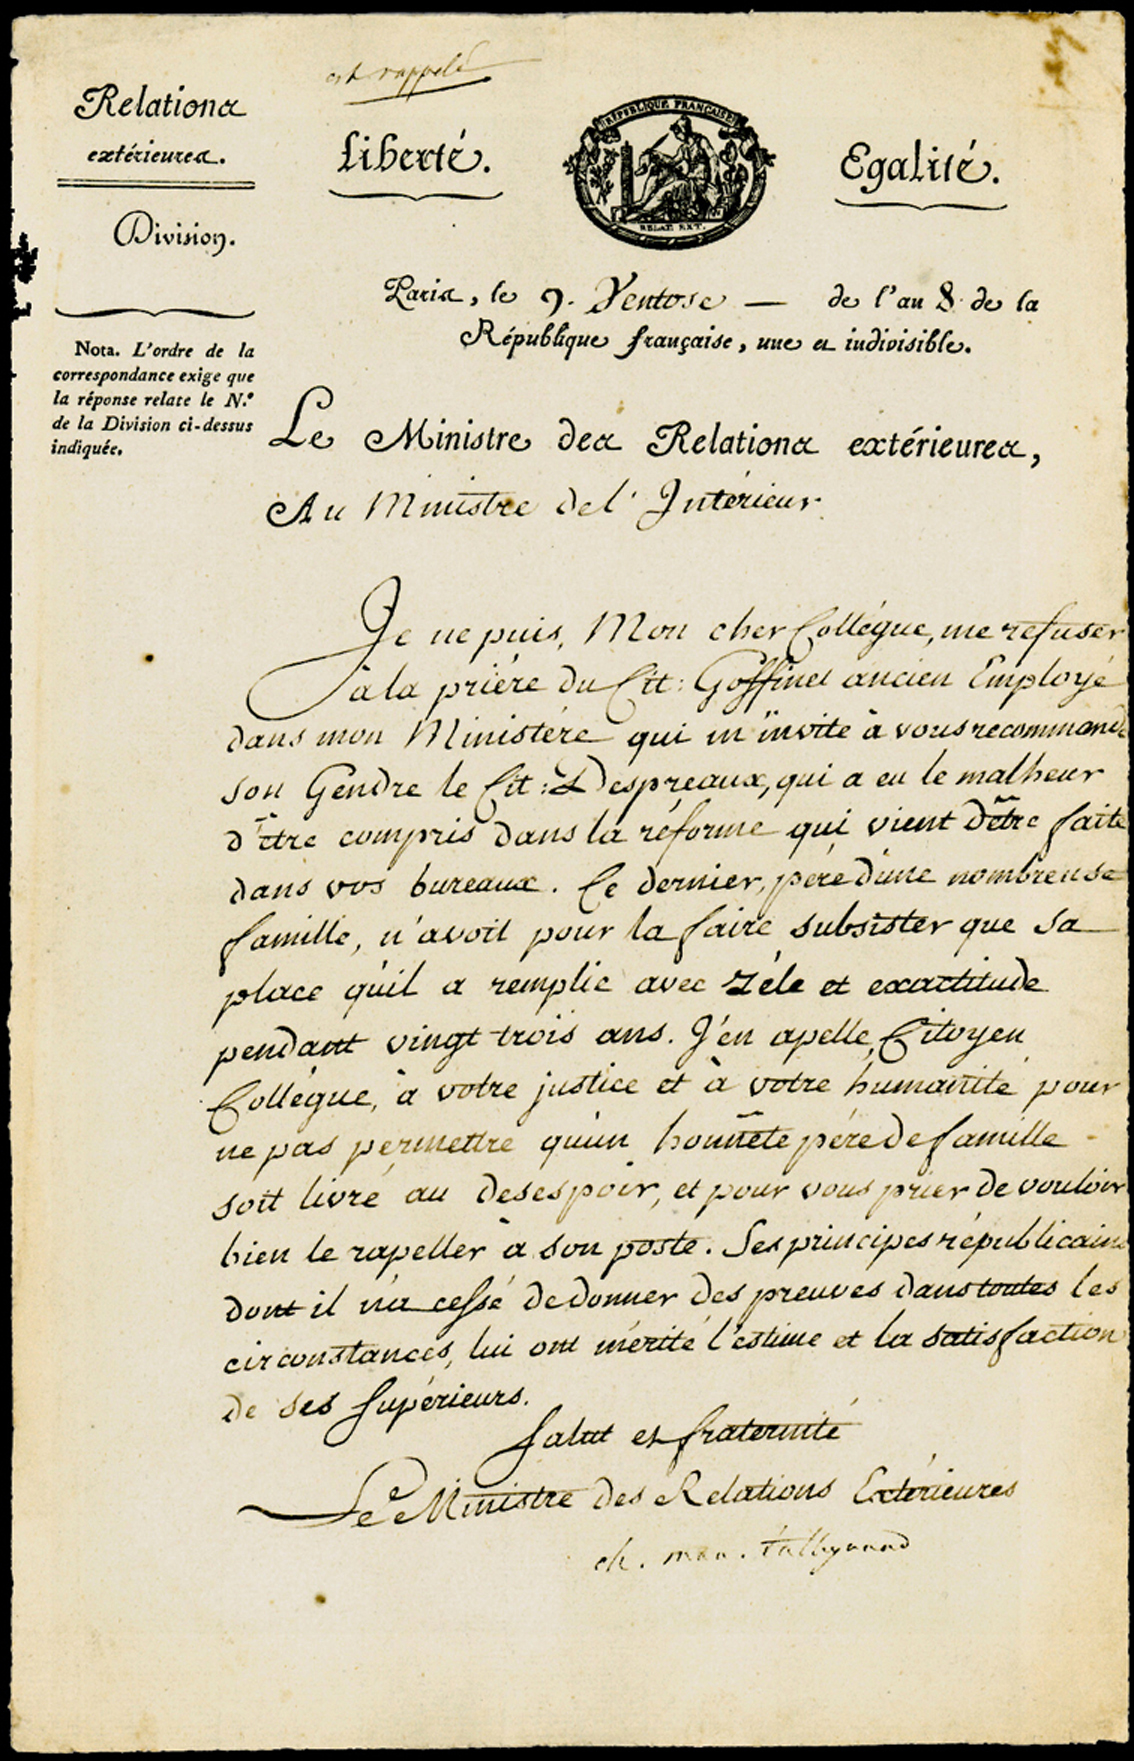 est rappelé
Relations
extérieures.
Division.
Nota. L'ordre de la
correspondance exige que
la réponse relate le N.º
de la Division ci-dessus
indiquée.
Liberté.
RÉPUBLIQUE FRANÇAISE
RELAT. EXT.
Egalité.
Paris, le 9. Ventose — de l'an 8. de la
République française, une et indivisible.
Le Ministre des Relations extérieures,
Au Ministre de l'Intérieur.
Je ne puis, Mon cher Collégue, me refuser
à la priére du Cit: Goffinet ancien Employé
dans mon Ministére qui m'invite à vous recommande
son Gendre le Cit: Despreaux, qui a eu le malheur
d'être compris dans la réforme qui vient d'être faite
dans vos bureaux. Ce dernier, pére d'une nombreuse
famille, n'avoit pour la faire subsister que sa
place qu'il a remplie avec zéle et exactitude
pendant vingt-trois ans. J'en apelle, Citoyen
Collégue, à votre justice et à votre humanité pour
ne pas permettre qu'un honnête pére de famille
soit livré au desespoir, et pour vous prier de vouloir
bien le rapeller à son poste. Ses principes républicains
dont il n'a cessé de donner des preuves dans toutes les
circonstances, lui ont mérité l'estime et la satisfaction
de ses supérieurs.
Salut et fraternité
Le Ministre des Relations Extérieures
ch. mau. talleyrand